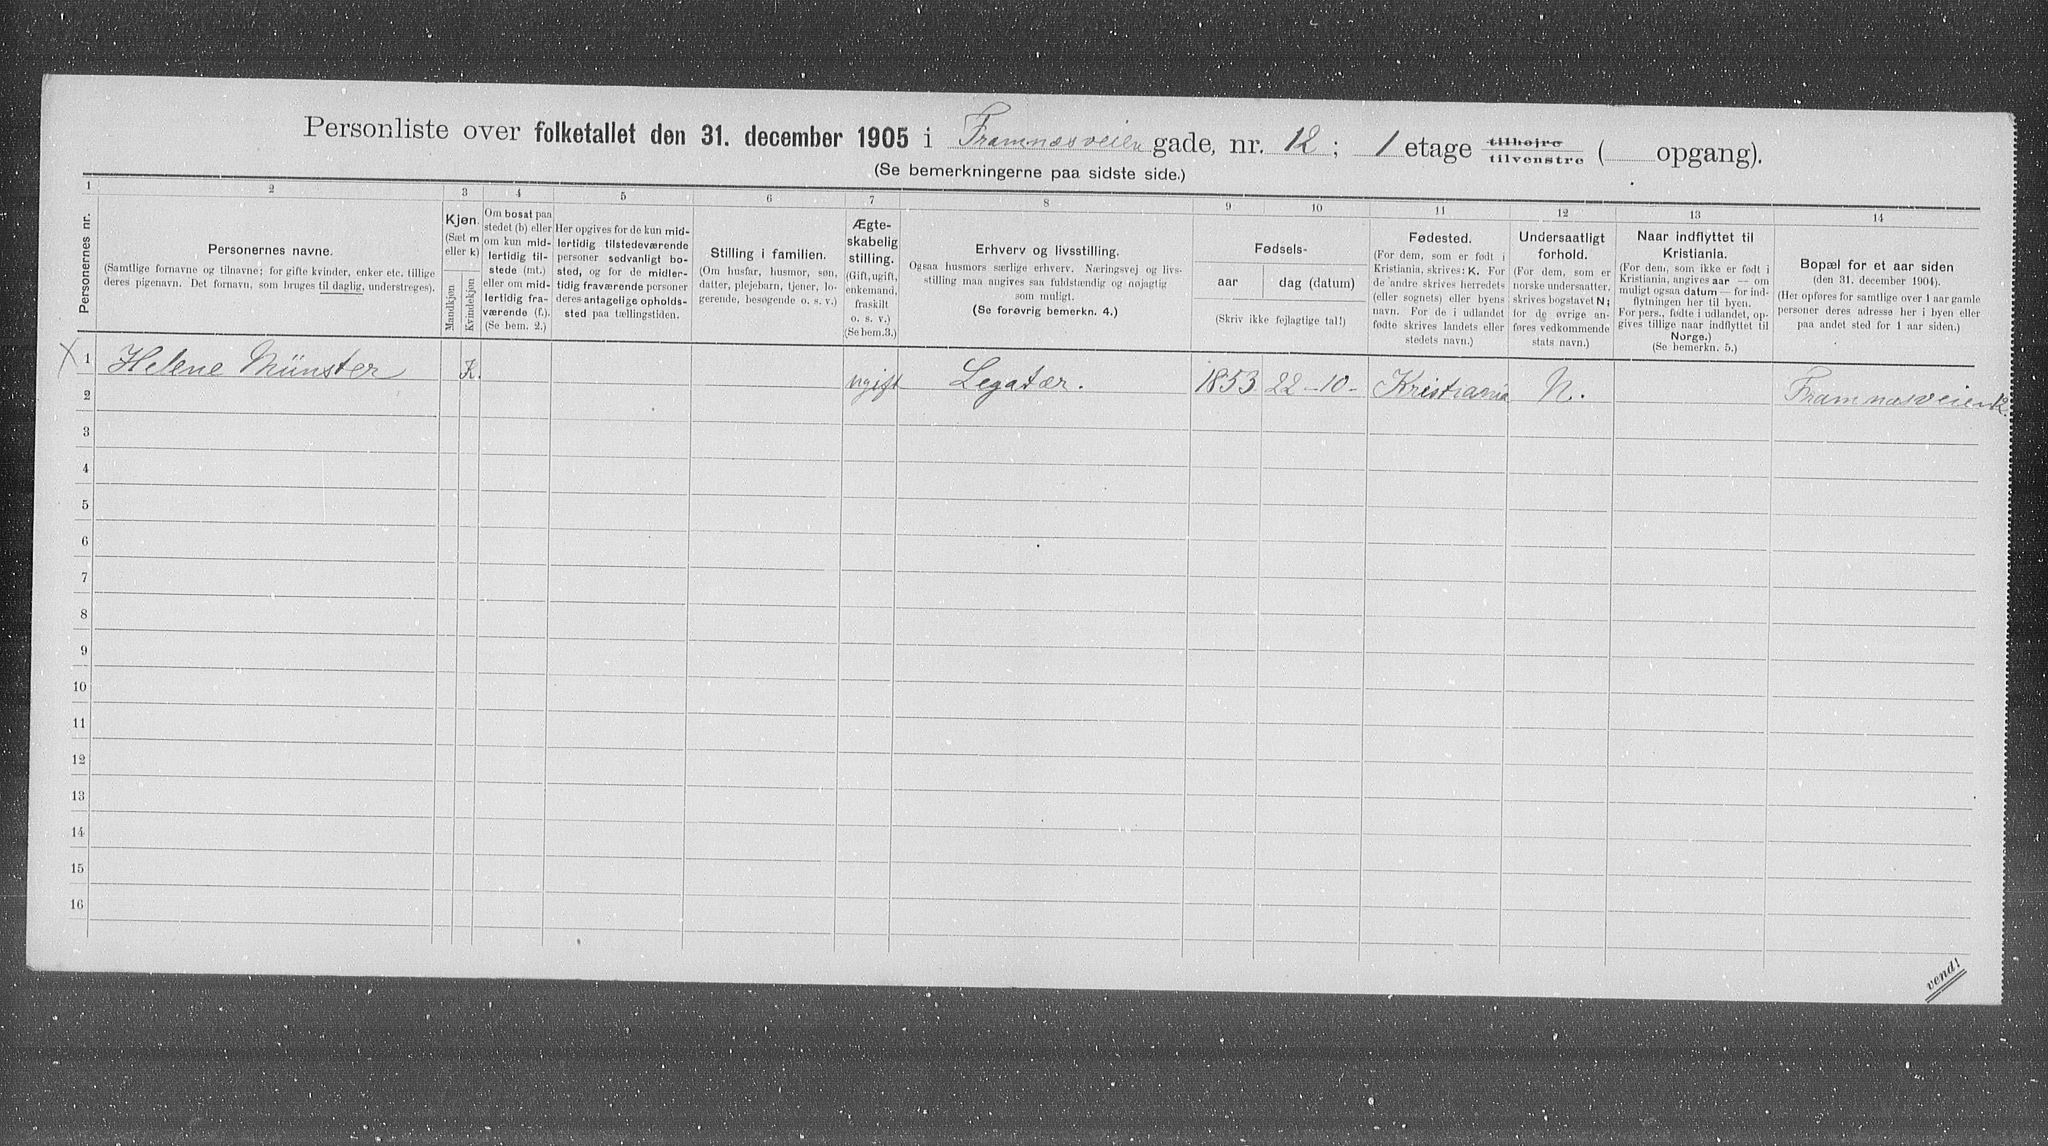 Personliste over folketallet den 31. december 1905 i Framnæsveien gade, nr. 12; 1 etage tilhøjre tilvenstre ( opgang).
(Se bemerkningerne paa sidste side.)
1 2 3 4 5 6 7 8 9 10 11 12 13 14
Personernes nr.
Personernes navne.
(Samtlige fornavne og tilnavne; for gifte kvinder, enker etc. tillige
deres pigenavn. Det fornavn, som bruges til daglig, understreges).
Kjøn.
(Sæt m
eller k)
Mandkjøn
Kvindekjøn
Om bosat paa
stedet (b) eller
om kun mid-
lertidig til-
stede (mt.)
eller om mid-
lertidig fra-
værende (f.).
(Se bem. 2.)
Her opgives for de kun mid-
lertidig tilstedeværende
personer sedvanligt bo-
sted, og for de midler-
tidig fraværende personer
deres antagelige opholds-
sted paa tællingstiden.
Stilling i familien.
(Om husfar, husmor, søn,
datter, plejebarn, tjener, lo-
gerende, besøgende o. s. v.)
Ægte-
skabelig
stilling.
(Gift, ugift,
enkemand,
fraskilt
o. s. v.)
(Se bem.3.)
Erhverv og livsstilling.
Ogsaa husmors særlige erhverv. Næringsvej og livs-
stilling maa angives saa fuldstændig og nøjagtig
som muligt.
(Se forøvrig bemerkn. 4.)
Fødsels-
aar dag (datum)
(Skriv ikke fejlagtige tal!)
Fødested.
(For dem, som er født i
Kristiania, skrives: K. For
de andre skrives herredets
(eller sognets) eller byens
navn. For de i udlandet
fødte skrives landets eller
stedets navn.)
Undersaatligt
forhold.
(For dem, som er
norske undersaatter,
skrives bogstavet N;
for de øvrige an-
føres vedkommende
stats navn.)
Naar indflyttet til
Kristiania.
(For dem, som ikke er født i
Kristiania, angives aar — om
muligt ogsaa datum — for ind-
flytningen her til byen.
For pers., fødte i udlandet, op-
gives tillige naar indflyttet til
Norge.)
(Se bemerkn. 5.)
Bopæl for et aar siden
(den 31. december 1904).
(Her opføres for samtlige over 1 aar gamle
personer deres adresse her i byen eller
paa andet sted for 1 aar siden.)
X 1 Helene Münster K. ugift Legatær. 1853 22-10- Kristiania N. Framnæsveien 12.
2
3
4
5
6
7
8
9
10
11
12
13
14
15
16
vend!